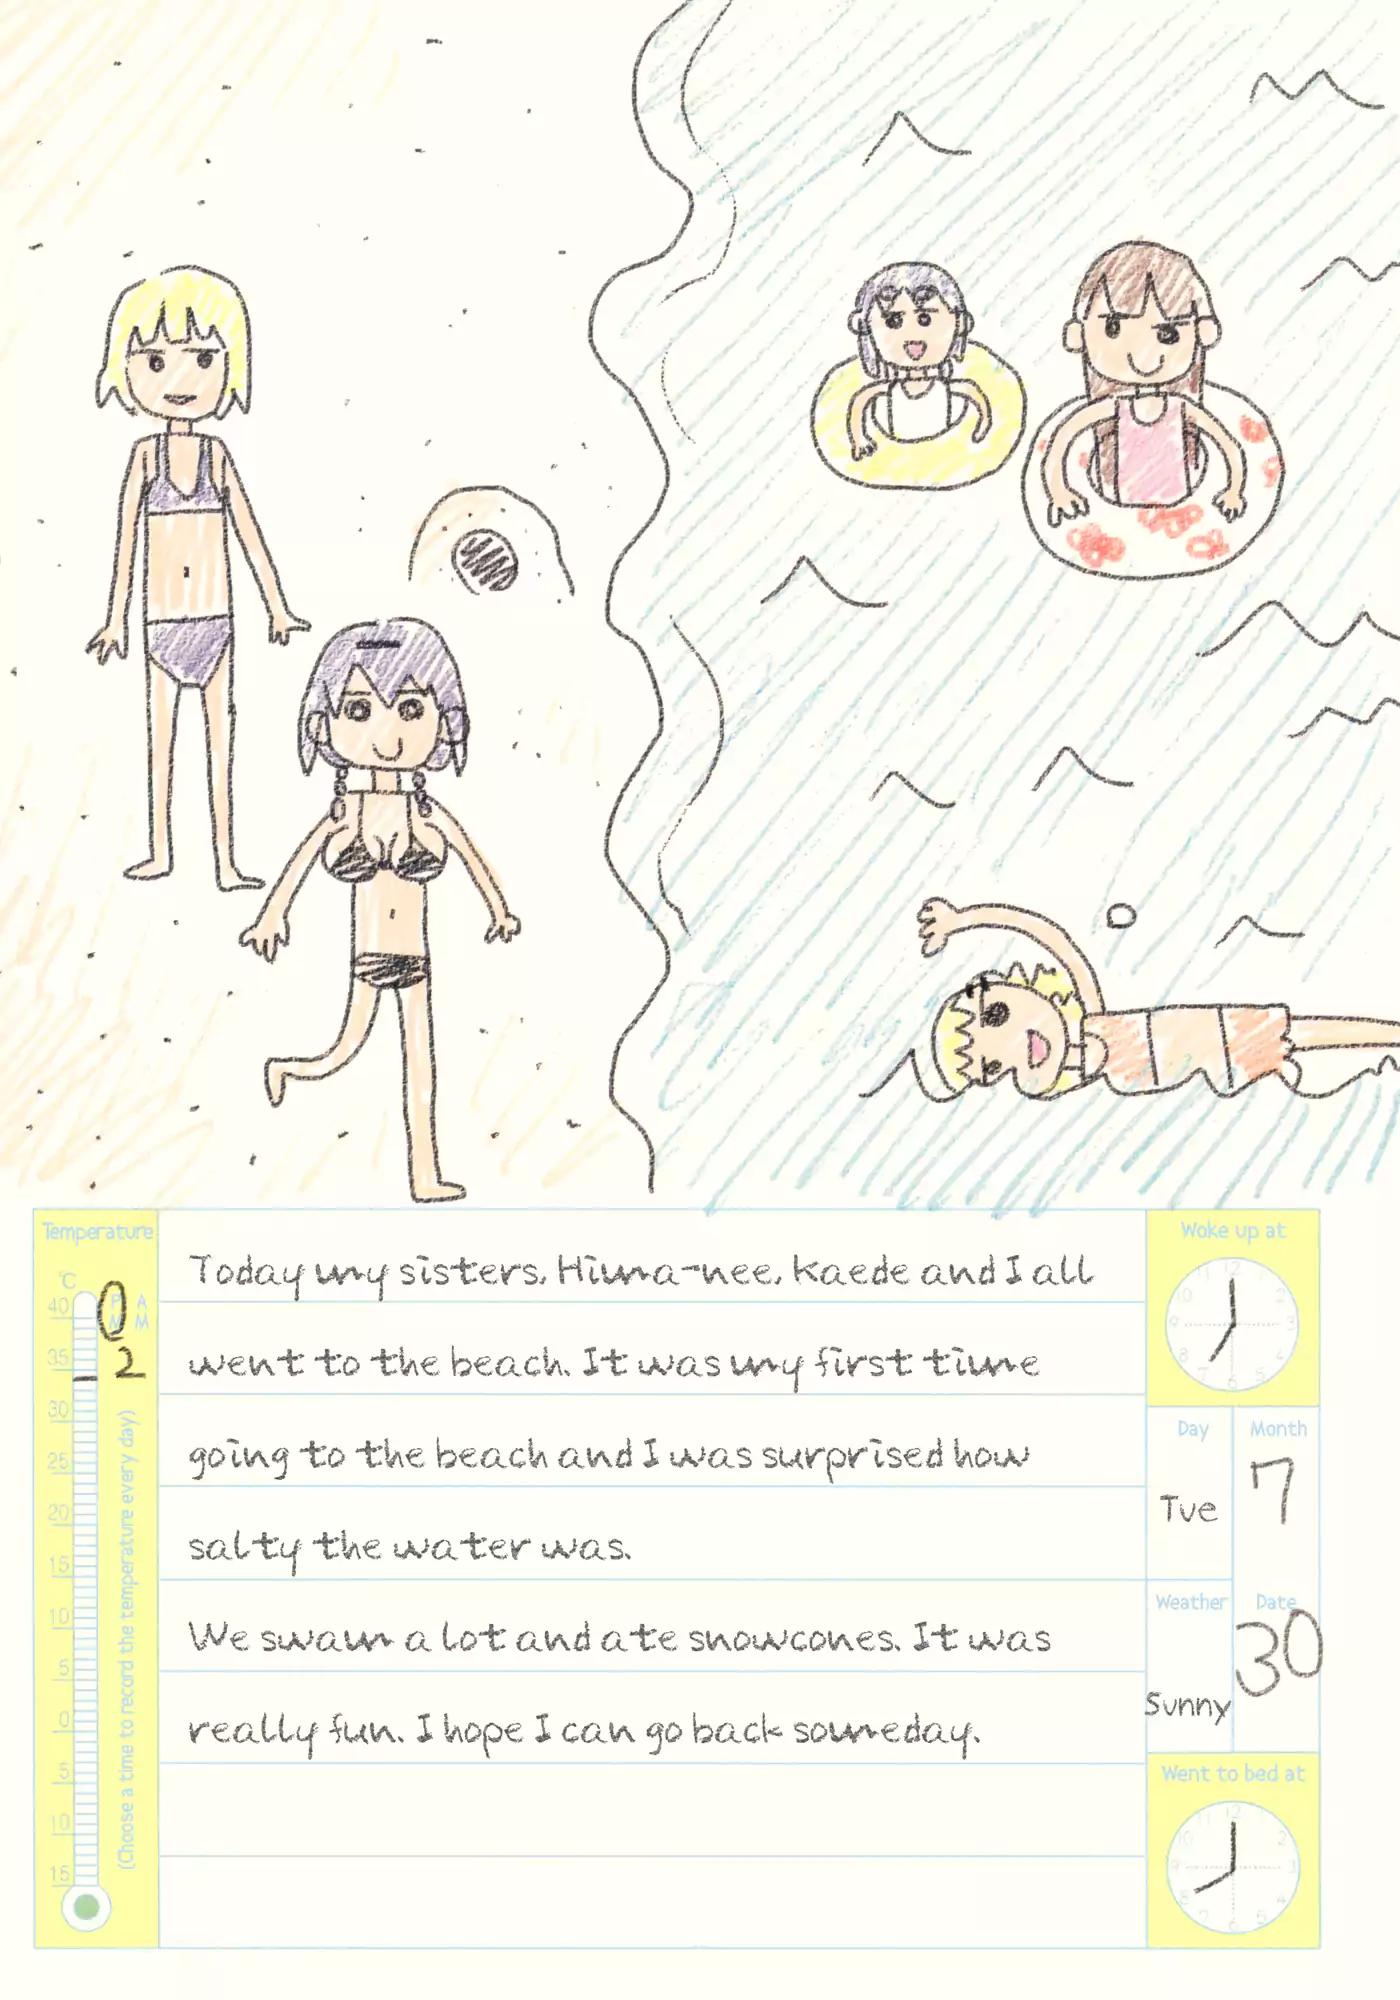 Temperature
℃
40
35
30
25
20
15
10
5
0
5
10
15
PM AM
2
(Choose a time to record the temperature every day)
Today my sisters, Hima-nee, Kaede and I all
went to the beach. It was my first time
going to the beach and I was surprised how
salty the water was.
We swam a lot and ate snowcones. It was
really fun. I hope I can go back someday.
Woke up at
11 12
10 2
9 3
8 4
7 6 5
Day
Tue
Month
7
Weather
Sunny
Date
30
Went to bed at
11 12
10 2
9 3
8 4
7 6 5